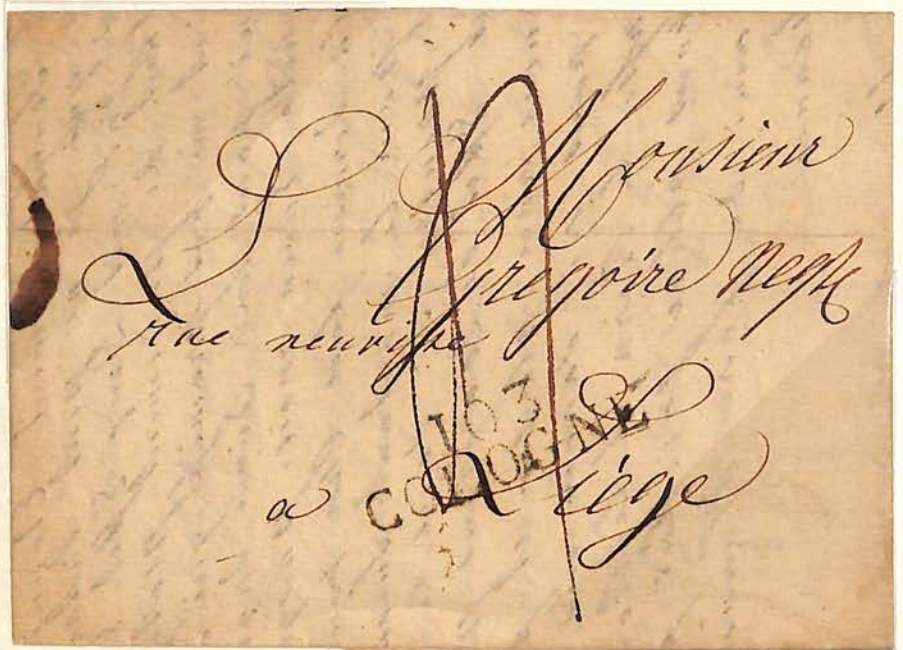 Monsieur
Gregoire Negte
rue neuvice
103
COLOGNE
a Liége